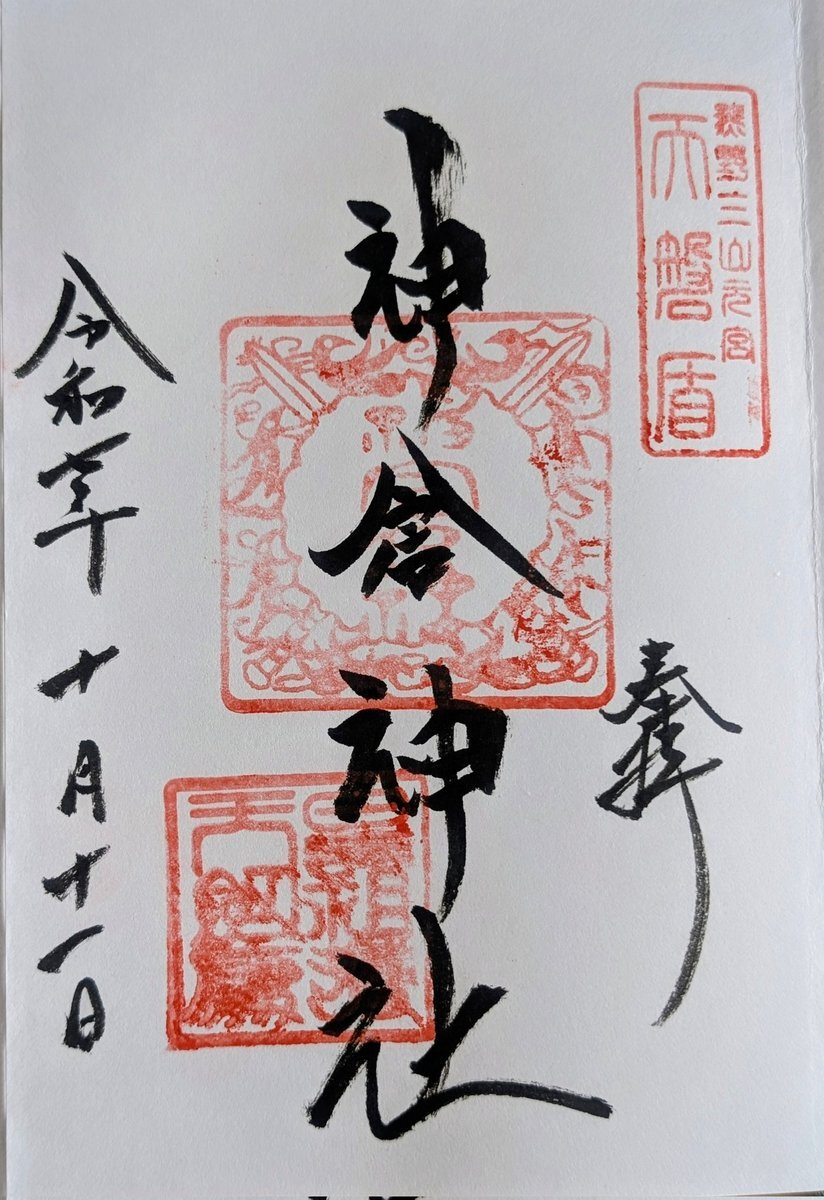 熊野三山元宮
天磐盾
奉拝
神倉神社
令和 年 十月十一日